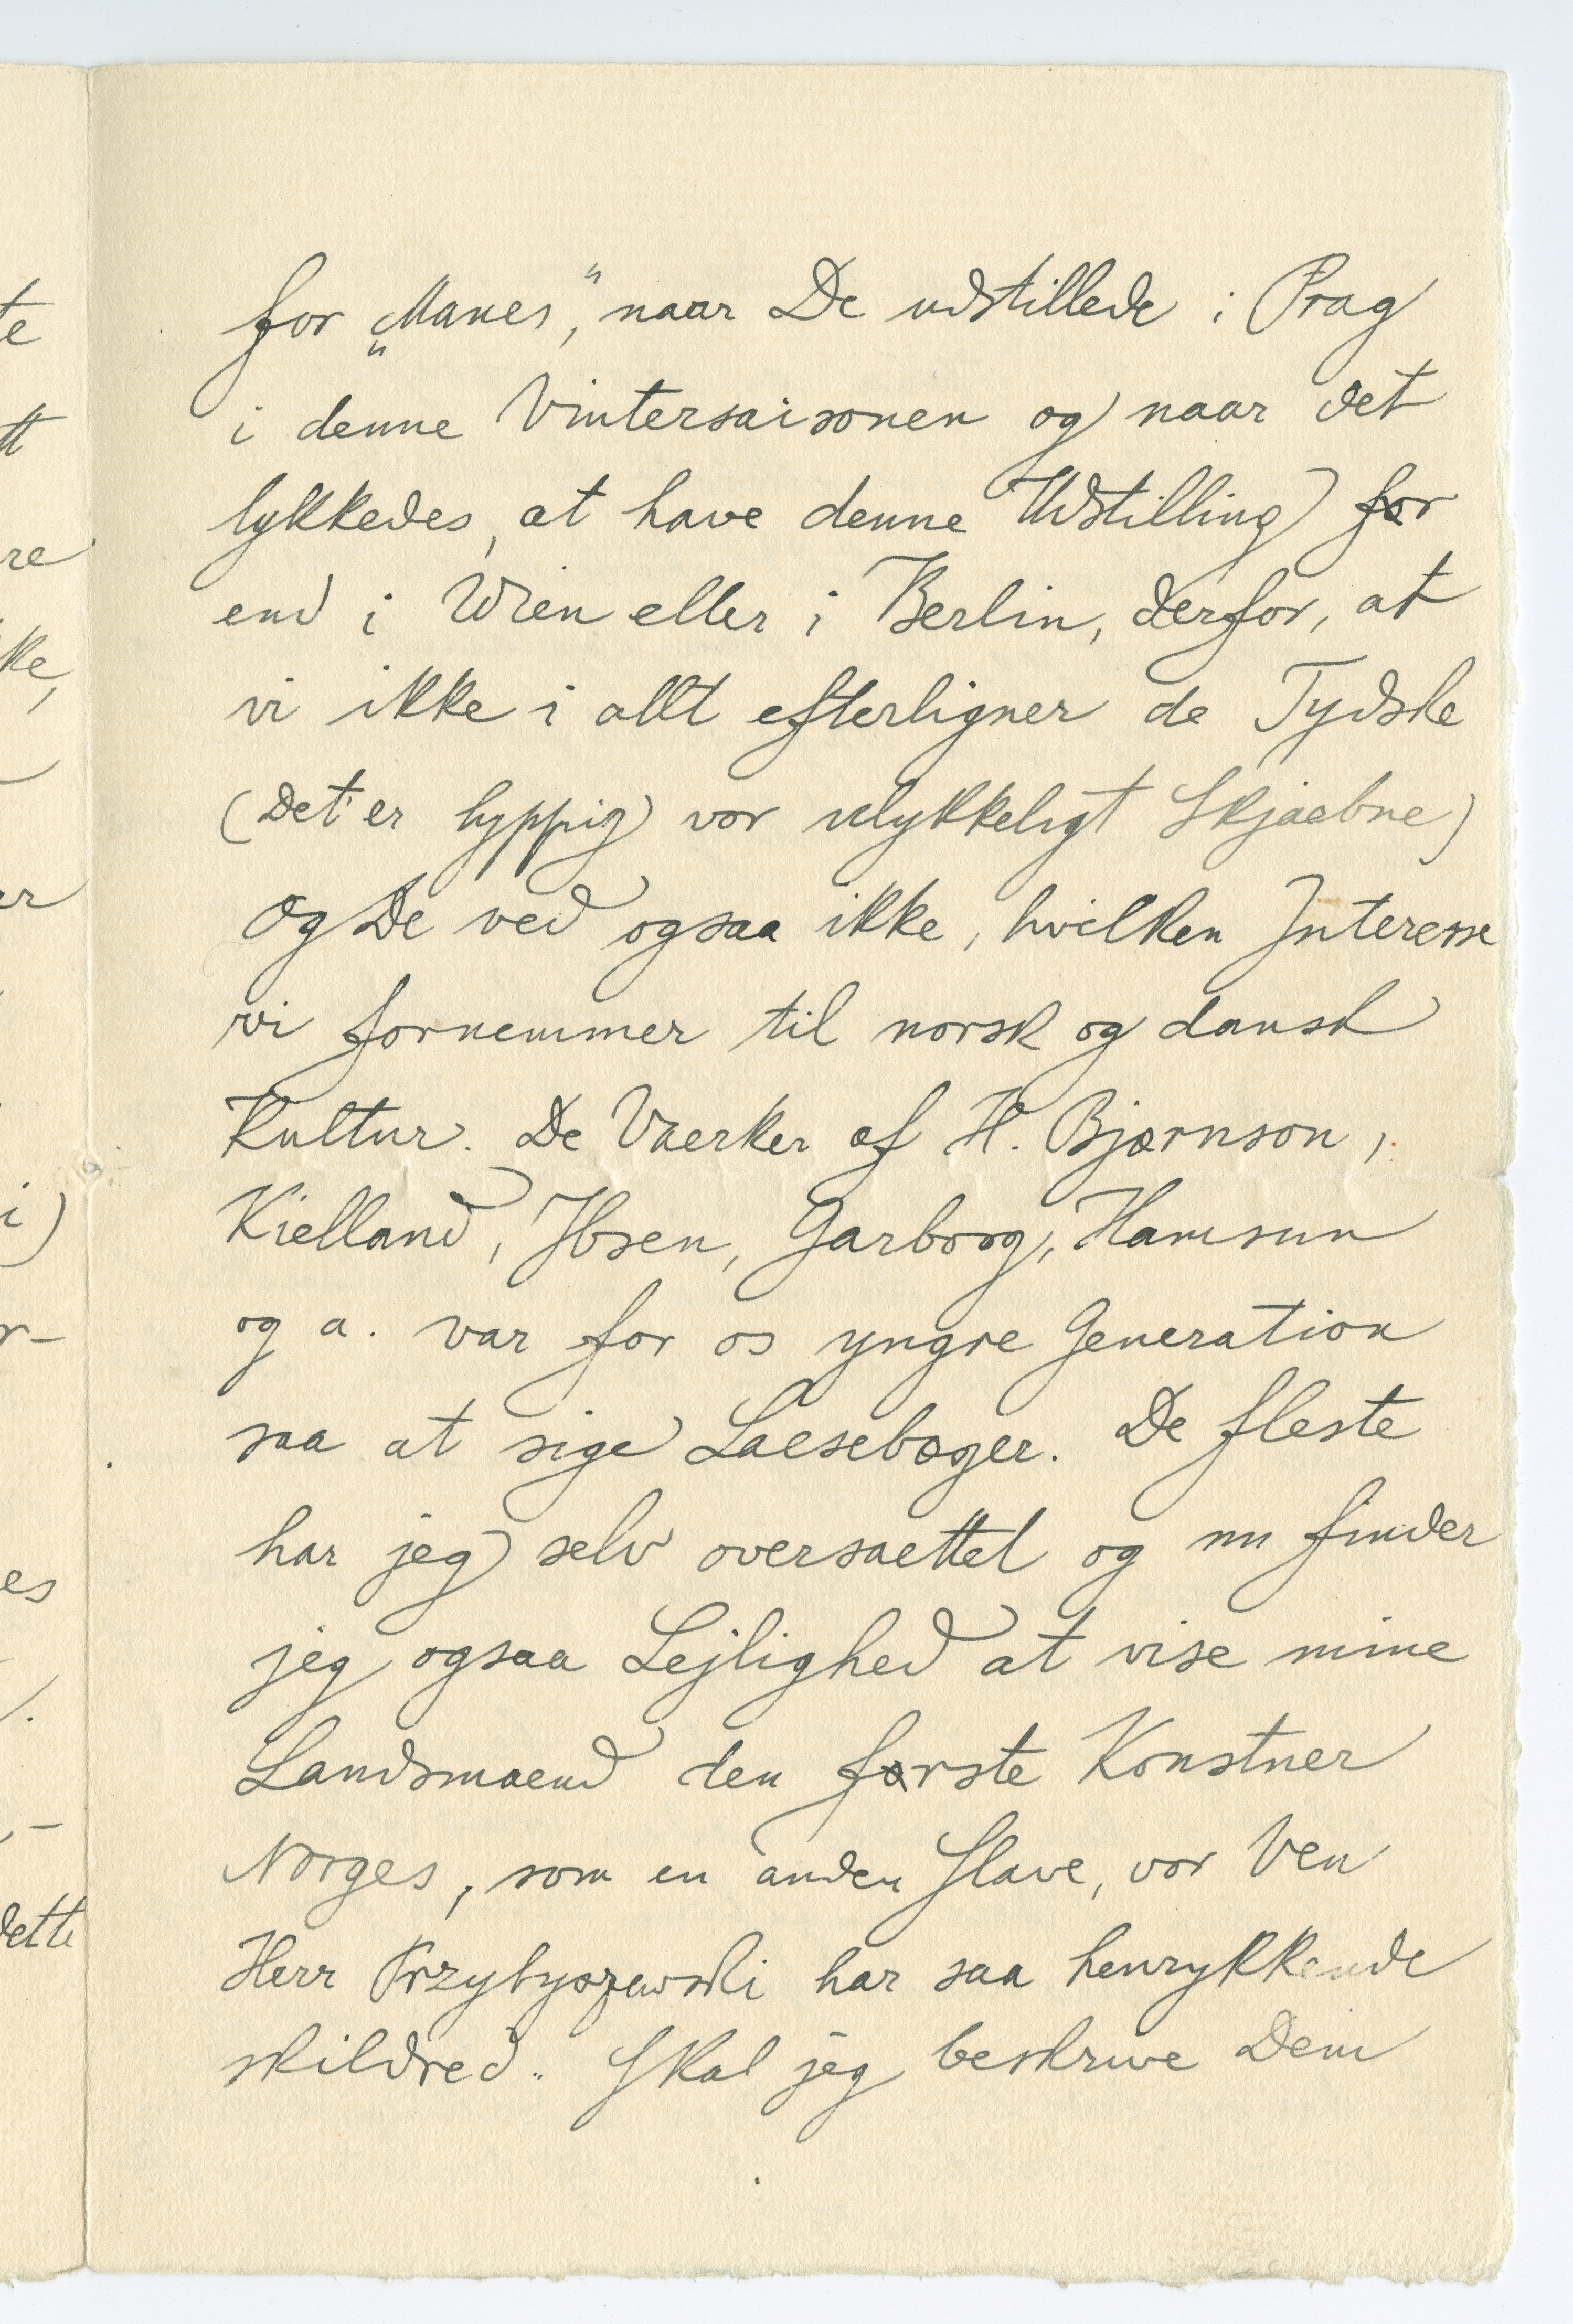 for „Manes”, naar De udstillede i Prag
i denne Vintersaisonen og naar det
lykkedes, at have denne Udstilling før
end i Wien eller i Berlin, derfor, at
vi ikke i allt efterligner de Tydske
(det er hyppig vor ulykkeligt Skjaebne)
Og De ved ogsaa ikke, hvilken Interesse
vi fornemmer til norsk og dansk
Kultur. De Vaerker af H. Bjørnson,
Kielland, Ibsen, Garborg, Hamsun
og a. var for os yngre Generation
saa at sige Laesebøger. De fleste
har jeg selv oversaettet og nu finder
jeg ogsaa Lejlighed at vise mine
Landsmaend den første Konstner
Norges, som en anden Slave, vor Ven
Herr Przybyszewski har saa henrykkende
skildred. Skal jeg beskrive Dem
te
tt
re
ke,
er
i)
r-
es
dette